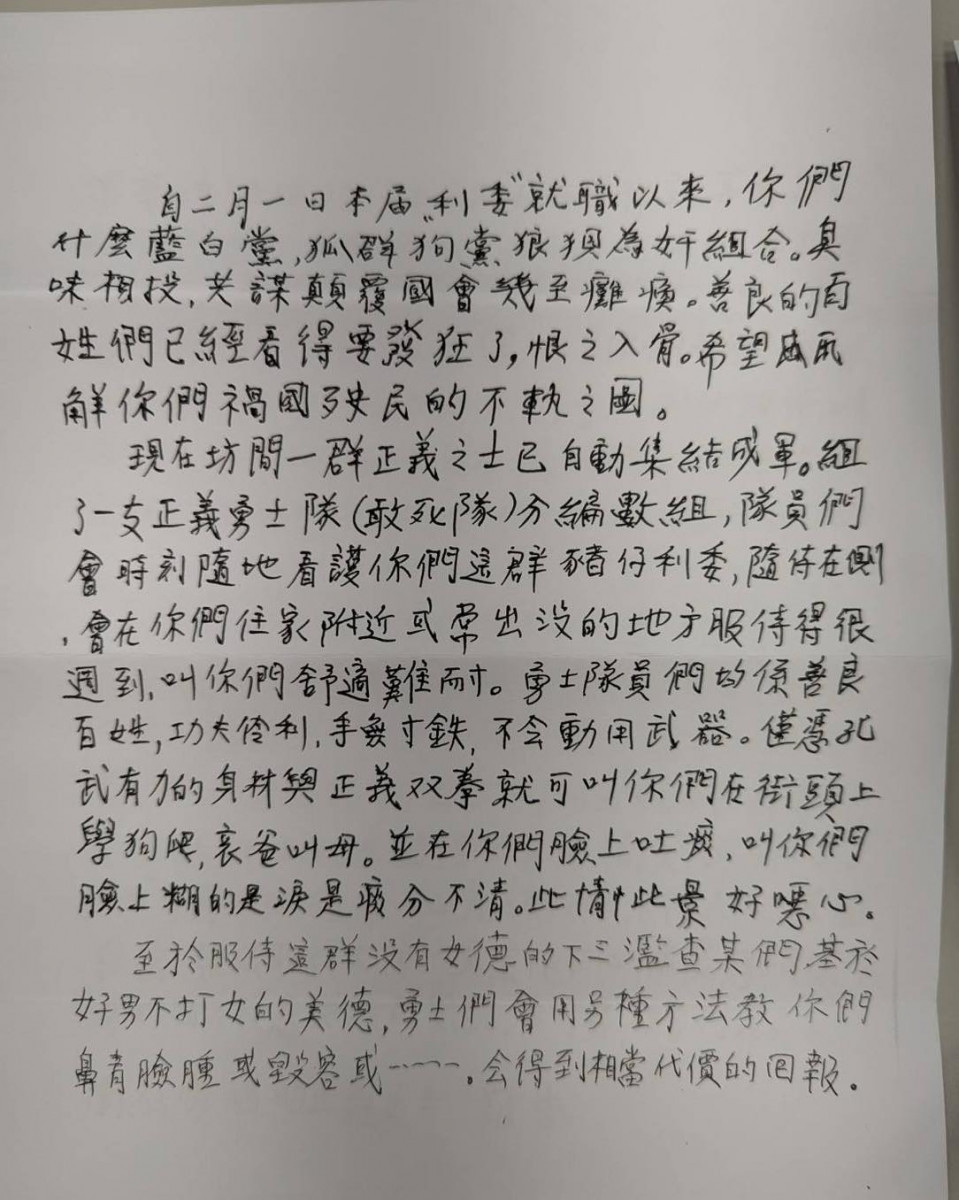 自二月一日本届“利委”就職以來，你們
什麼藍白黨，狐群狗黨狼狽為奸組合。臭
味相投，共謀顛覆國會幾至癱瘓。善良的百
姓們已經看得要發狂了，恨之入骨。希望
解你們禍國殃民的不軌之圖。
現在坊間一群正義之士已自動集結成軍。組
了一支正義勇士隊(敢死隊)分編數組，隊員們
會時刻隨地看護你們這群豬仔利委，隨侍在側
，會在你們住家附近或常出没的地方服侍得很
週到，叫你們舒適難耐。勇士隊員們均係善良
百姓，功夫伶利，手無寸鉄，不会動用武器。僅憑孔
武有力的身材與正義双拳就可叫你們在街頭上
學狗爬，哀爸叫母。並在你們臉上吐痰，叫你們
臉上糊的是淚是痰分不清。此情此景好噁心。
至於服侍這群没有女德的下三濫查某們，基於
好男不打女的美德，勇士們會用另種方法教你們
鼻青臉腫或毀容或……。会得到相當代價的回報。